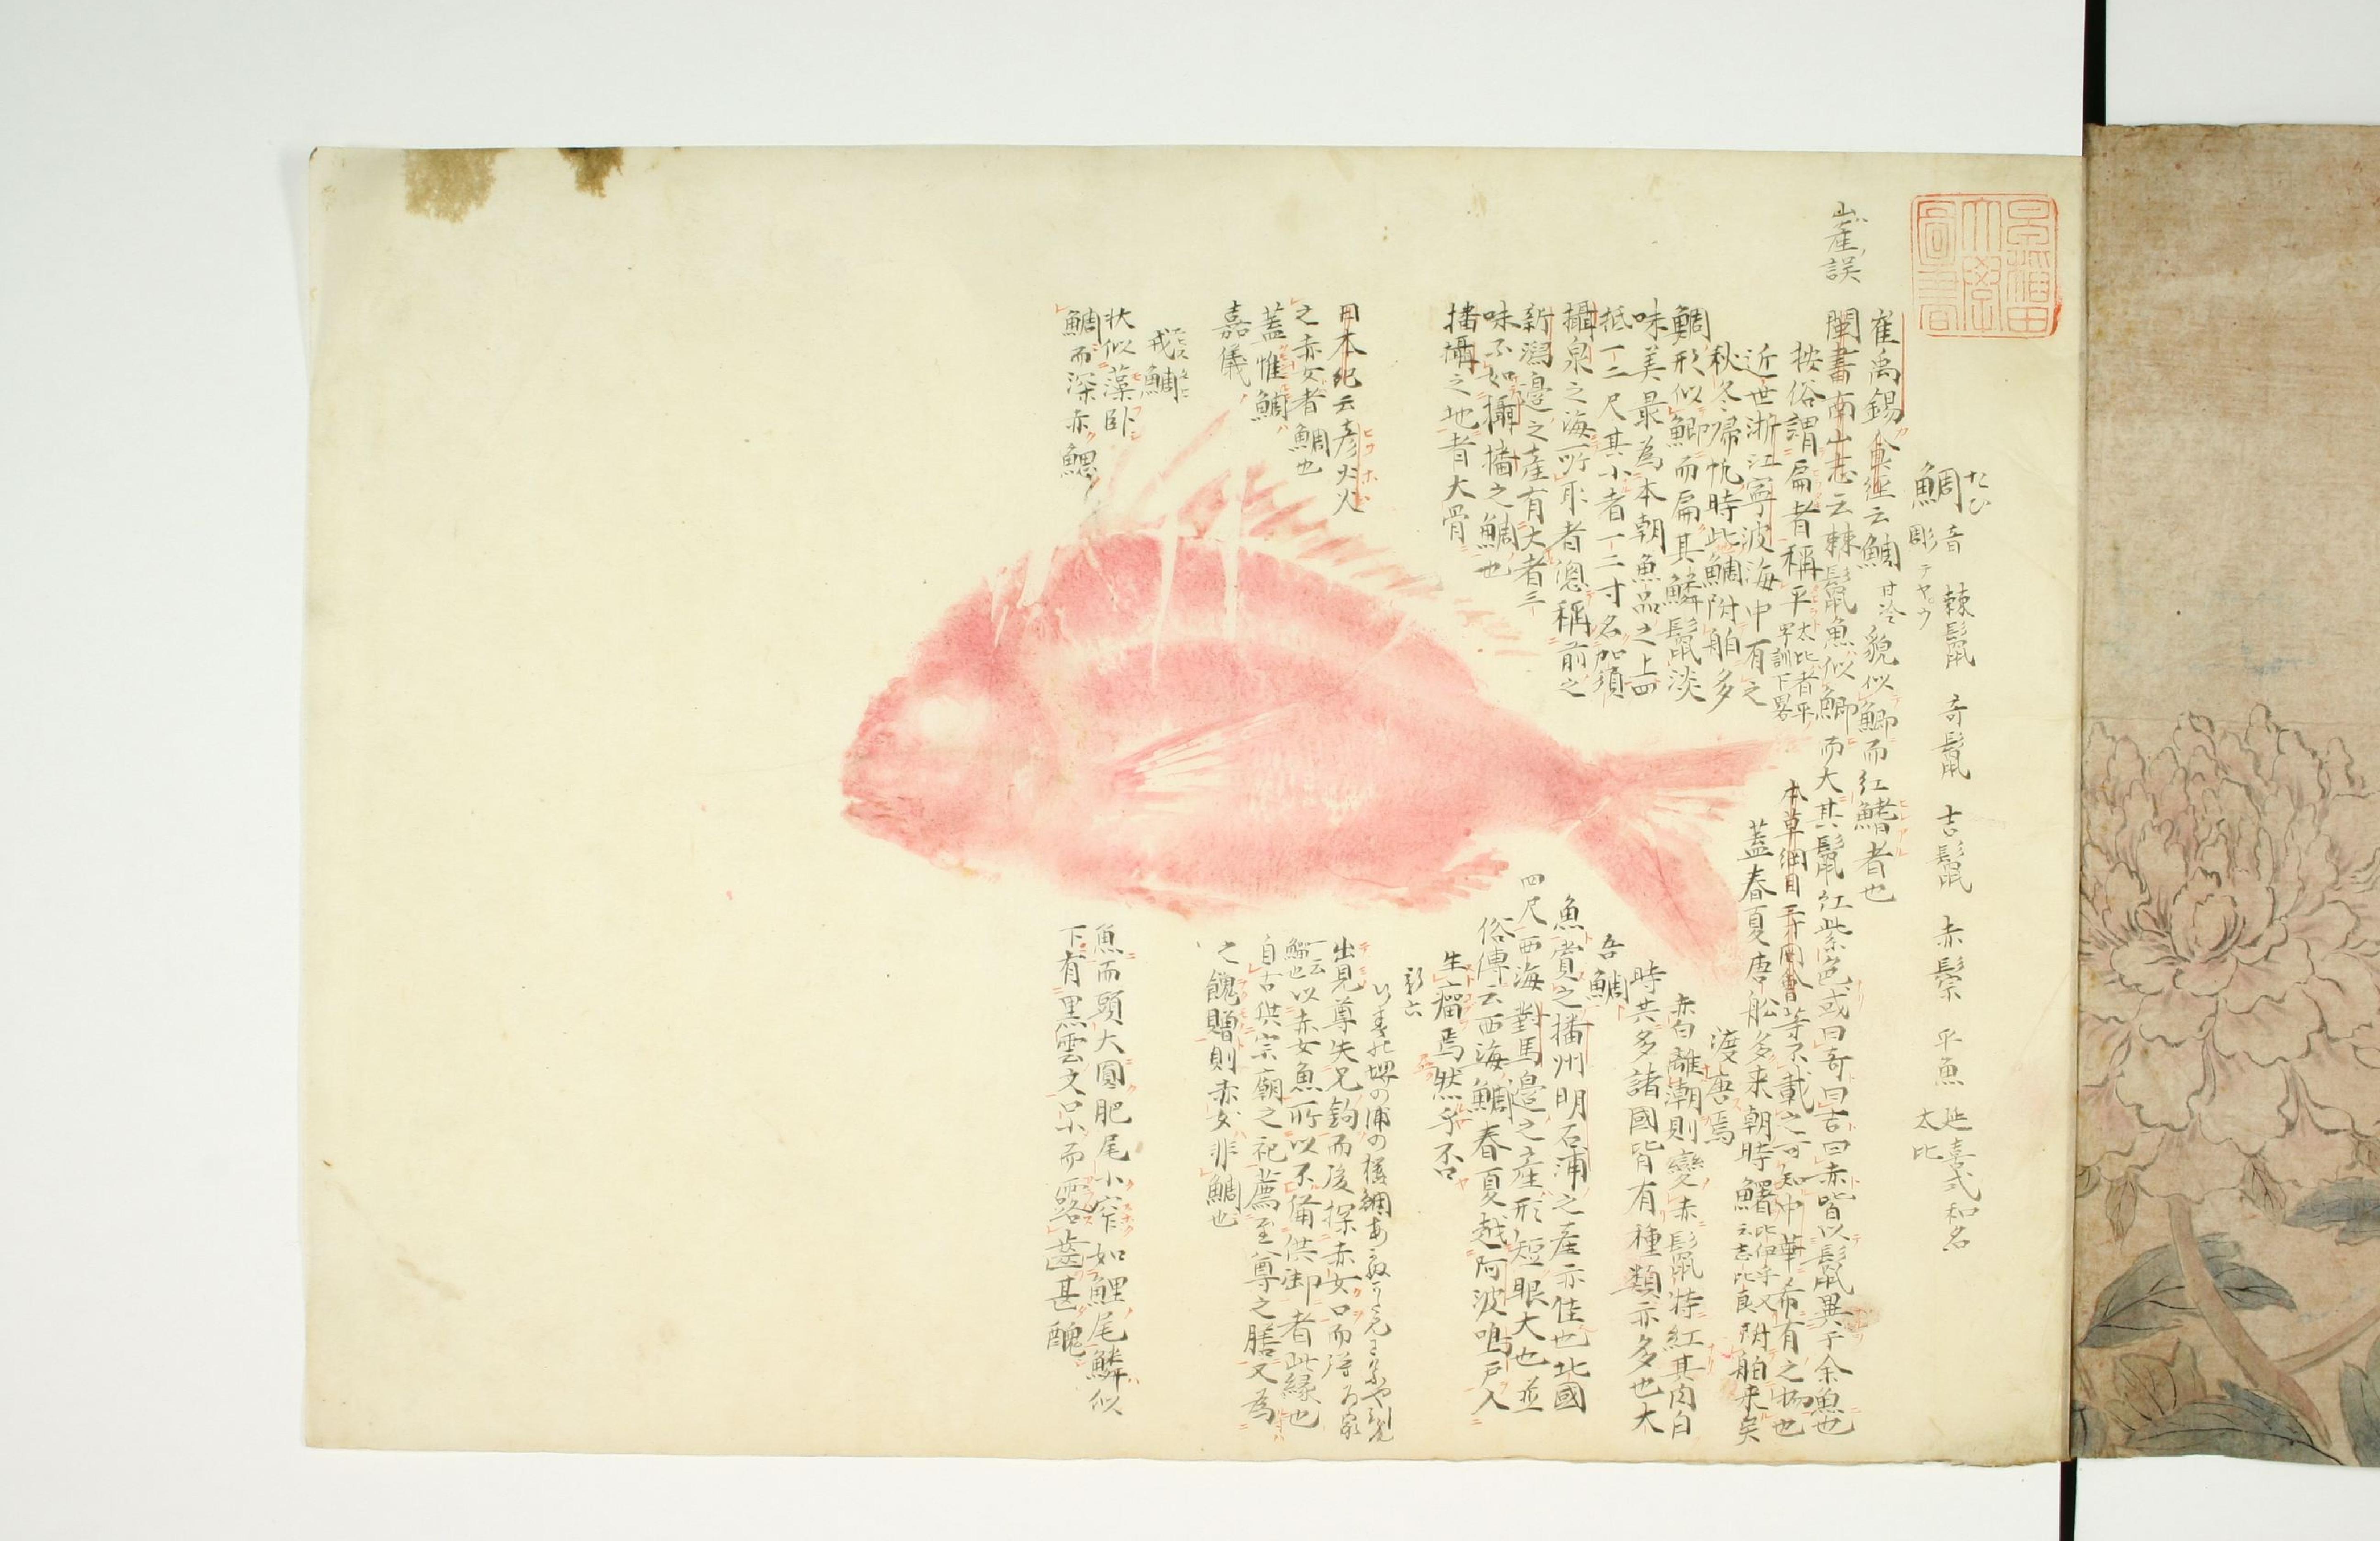 鯛 たひ 音彫 テヤウ 棘鬣 奇鬣 吉鬣 赤鬃 平魚 延喜式和名太比
崔禹錫食經云鯛 甘冷 貌似鯽而紅鰭者也
崔誤
閩書南山志云棘鬣魚似鯽而大其鬣紅紫色或曰奇曰吉曰赤皆以鬣異于余魚也
按俗謂扁者稱平 太比者平 下畧
本草綱目 等不載之可知中華希有之物也
近世浙江寧波海中有之
蓋春夏唐船多来朝時 附舶来矣
秋冬帰帆時此鯛附舶多
渡唐焉
鯛形似鯽而扁其鱗鬣淡
赤白離潮則變赤鬣特紅其肉白
味美最為本朝魚品之上四
時共多諸國皆有種類亦多也大
抵一二尺其小者一二寸名加須
吾鯛
攝泉之海所取者總稱前之
魚賞之播州明石浦之産亦佳也北國
新潟邊之産有大者三
四尺西海對馬邊之産形短眼大也並
味不如攝播之鯛也
俗傳云西海鯛春夏越阿波鳴戸入
播攝之地者大骨
生瘤焉然乎不
日本紀云彦火火
出見尊失兄鉤而後探赤女口而得
之赤女者鯛也
一云鯔也以赤女魚所以不備供御者此縁也
蓋惟鯛
自古供宗廟之祀薦至尊之膳又為
嘉儀
之餽贈則赤女非鯛也
戎鯛
状似藻臥
魚而頭大圓肥尾小窄如鯉尾鱗似
鯛而深赤鰓
下有黒雲之 而露齒甚醜